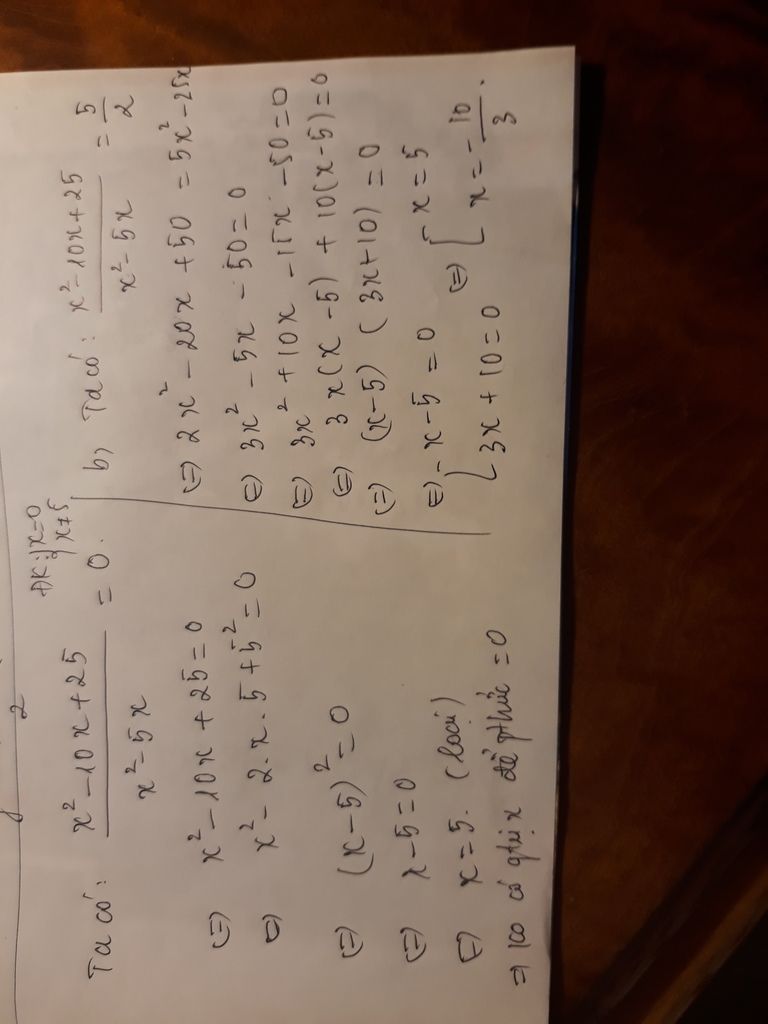 2
ĐK: x=0
x≠5
Ta có: x²-10x+25 / x²-5x = 0.
(=) x²-10x+25=0
(=) x²-2.x.5+5²=0
(=) (x-5)²=0
(=) x-5=0
(=) x=5. (loại)
=> ko có gtrị x để pthức =0
b, Ta có: x²-10x+25 / x²-5x = 5/2
(=) 2x²-20x+50=5x²-25x
(=) 3x²-5x-50=0
(=) 3x²+10x-15x-50=0
(=) 3x(x-5)+10(x-5)=0
(=) (x-5)(3x+10)=0
(=) [x-5=0 (=) [x=5
3x+10=0 x=-10/3.